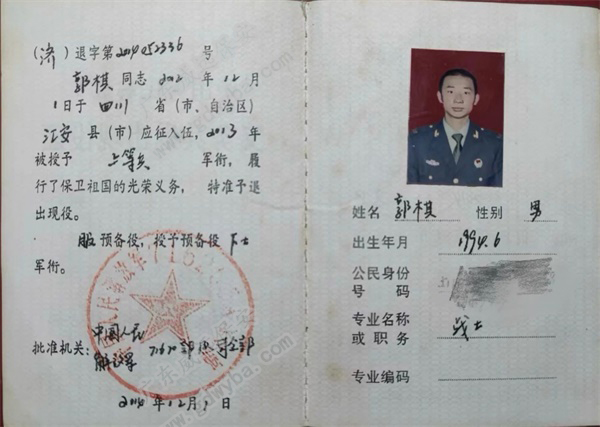 (济) 退字第2014052336 号
郭棋 同志 2012 年 12 月
1日于 四川 省(市、自治区)
江安 县(市)应征入伍, 2013 年
被授予 上等兵 军衔,履
行了保卫祖国的光荣义务, 特准予退
出现役。
服 预备役,授予预备役 下士
军衔。
批准机关: 中国人民
解放军 部队司令部
2014 年 12 月 1 日
姓名 郭棋 性别 男
出生年月 1994.6
公民身份
号 码
专业名称
或职务 战士
专业编码